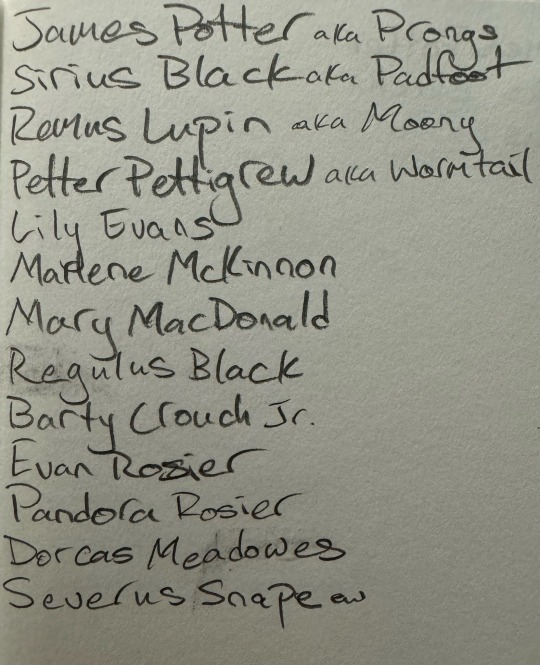 James Potter aka Prongs
Sirius Black aka Padfoot
Remus Lupin aka Moony
Petter Pettigrew aka Wormtail
Lily Evans
Marlene McKinnon
Mary MacDonald
Regulus Black
Barty Crouch Jr.
Evan Rosier
Pandora Rosier
Dorcas Meadowes
Severus Snape ew